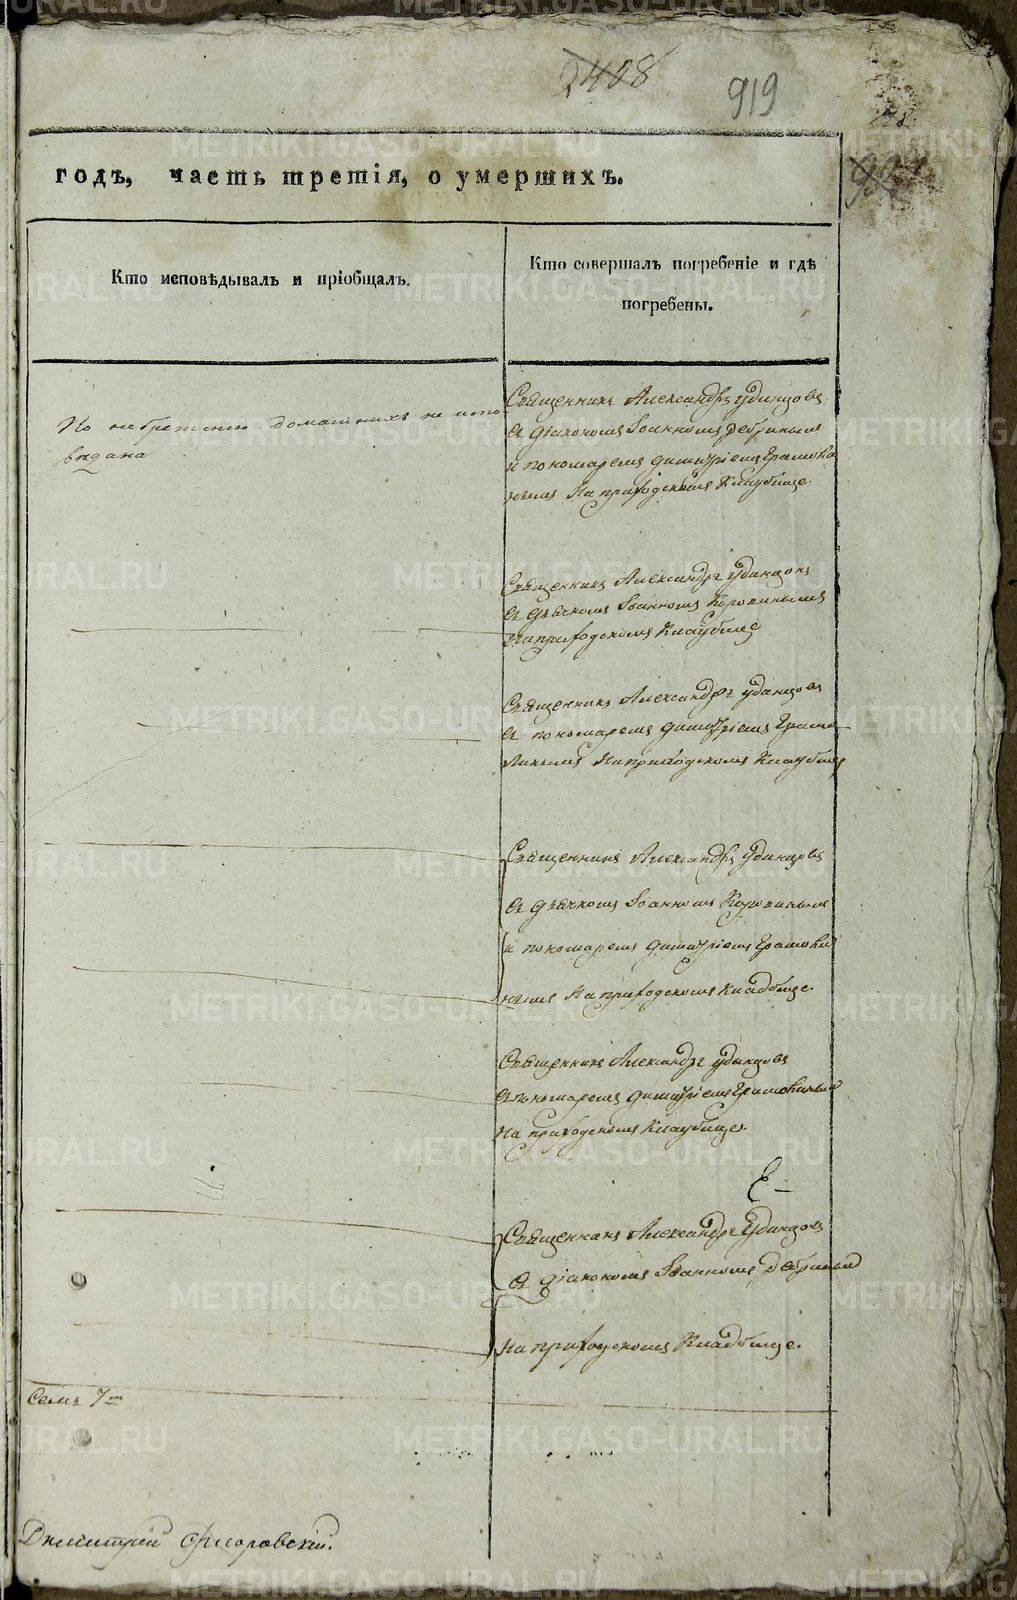 2408
919
годъ, часть третія, о умершихъ.
Кто исповѣдывалъ и пріобщалъ.
Кто совершалъ погребеніе и гдѣ
погребены.
По небрежению домашнихъ не испо-
вѣдана
Священникъ Александръ Удинцовъ
съ діакономъ Іоанномъ Дебринымъ
и пономаремъ Димитріемъ
На приходскомъ Кладбище.
Священникъ Александръ Удинцовъ
съ дьячкомъ Іоанномъ
На приходскомъ Кладбище
Священникъ Александръ Удинцовъ
съ пономаремъ Димитріемъ
На приходскомъ Кладбище
Священникъ Александръ Удинцовъ
съ дьячкомъ Іоанномъ
и пономаремъ Димитріемъ
На приходскомъ Кладбище.
Священникъ Александръ Удинцовъ
съ пономаремъ Димитріемъ
на приходскомъ Кладбище.
Священникъ Александръ Удинцовъ
съ діакономъ Іоанномъ Дебринымъ
На приходскомъ Кладбище.
Семъ 7
Димитрий Флоровскій.
METRIKI.GASO-URAL.RU